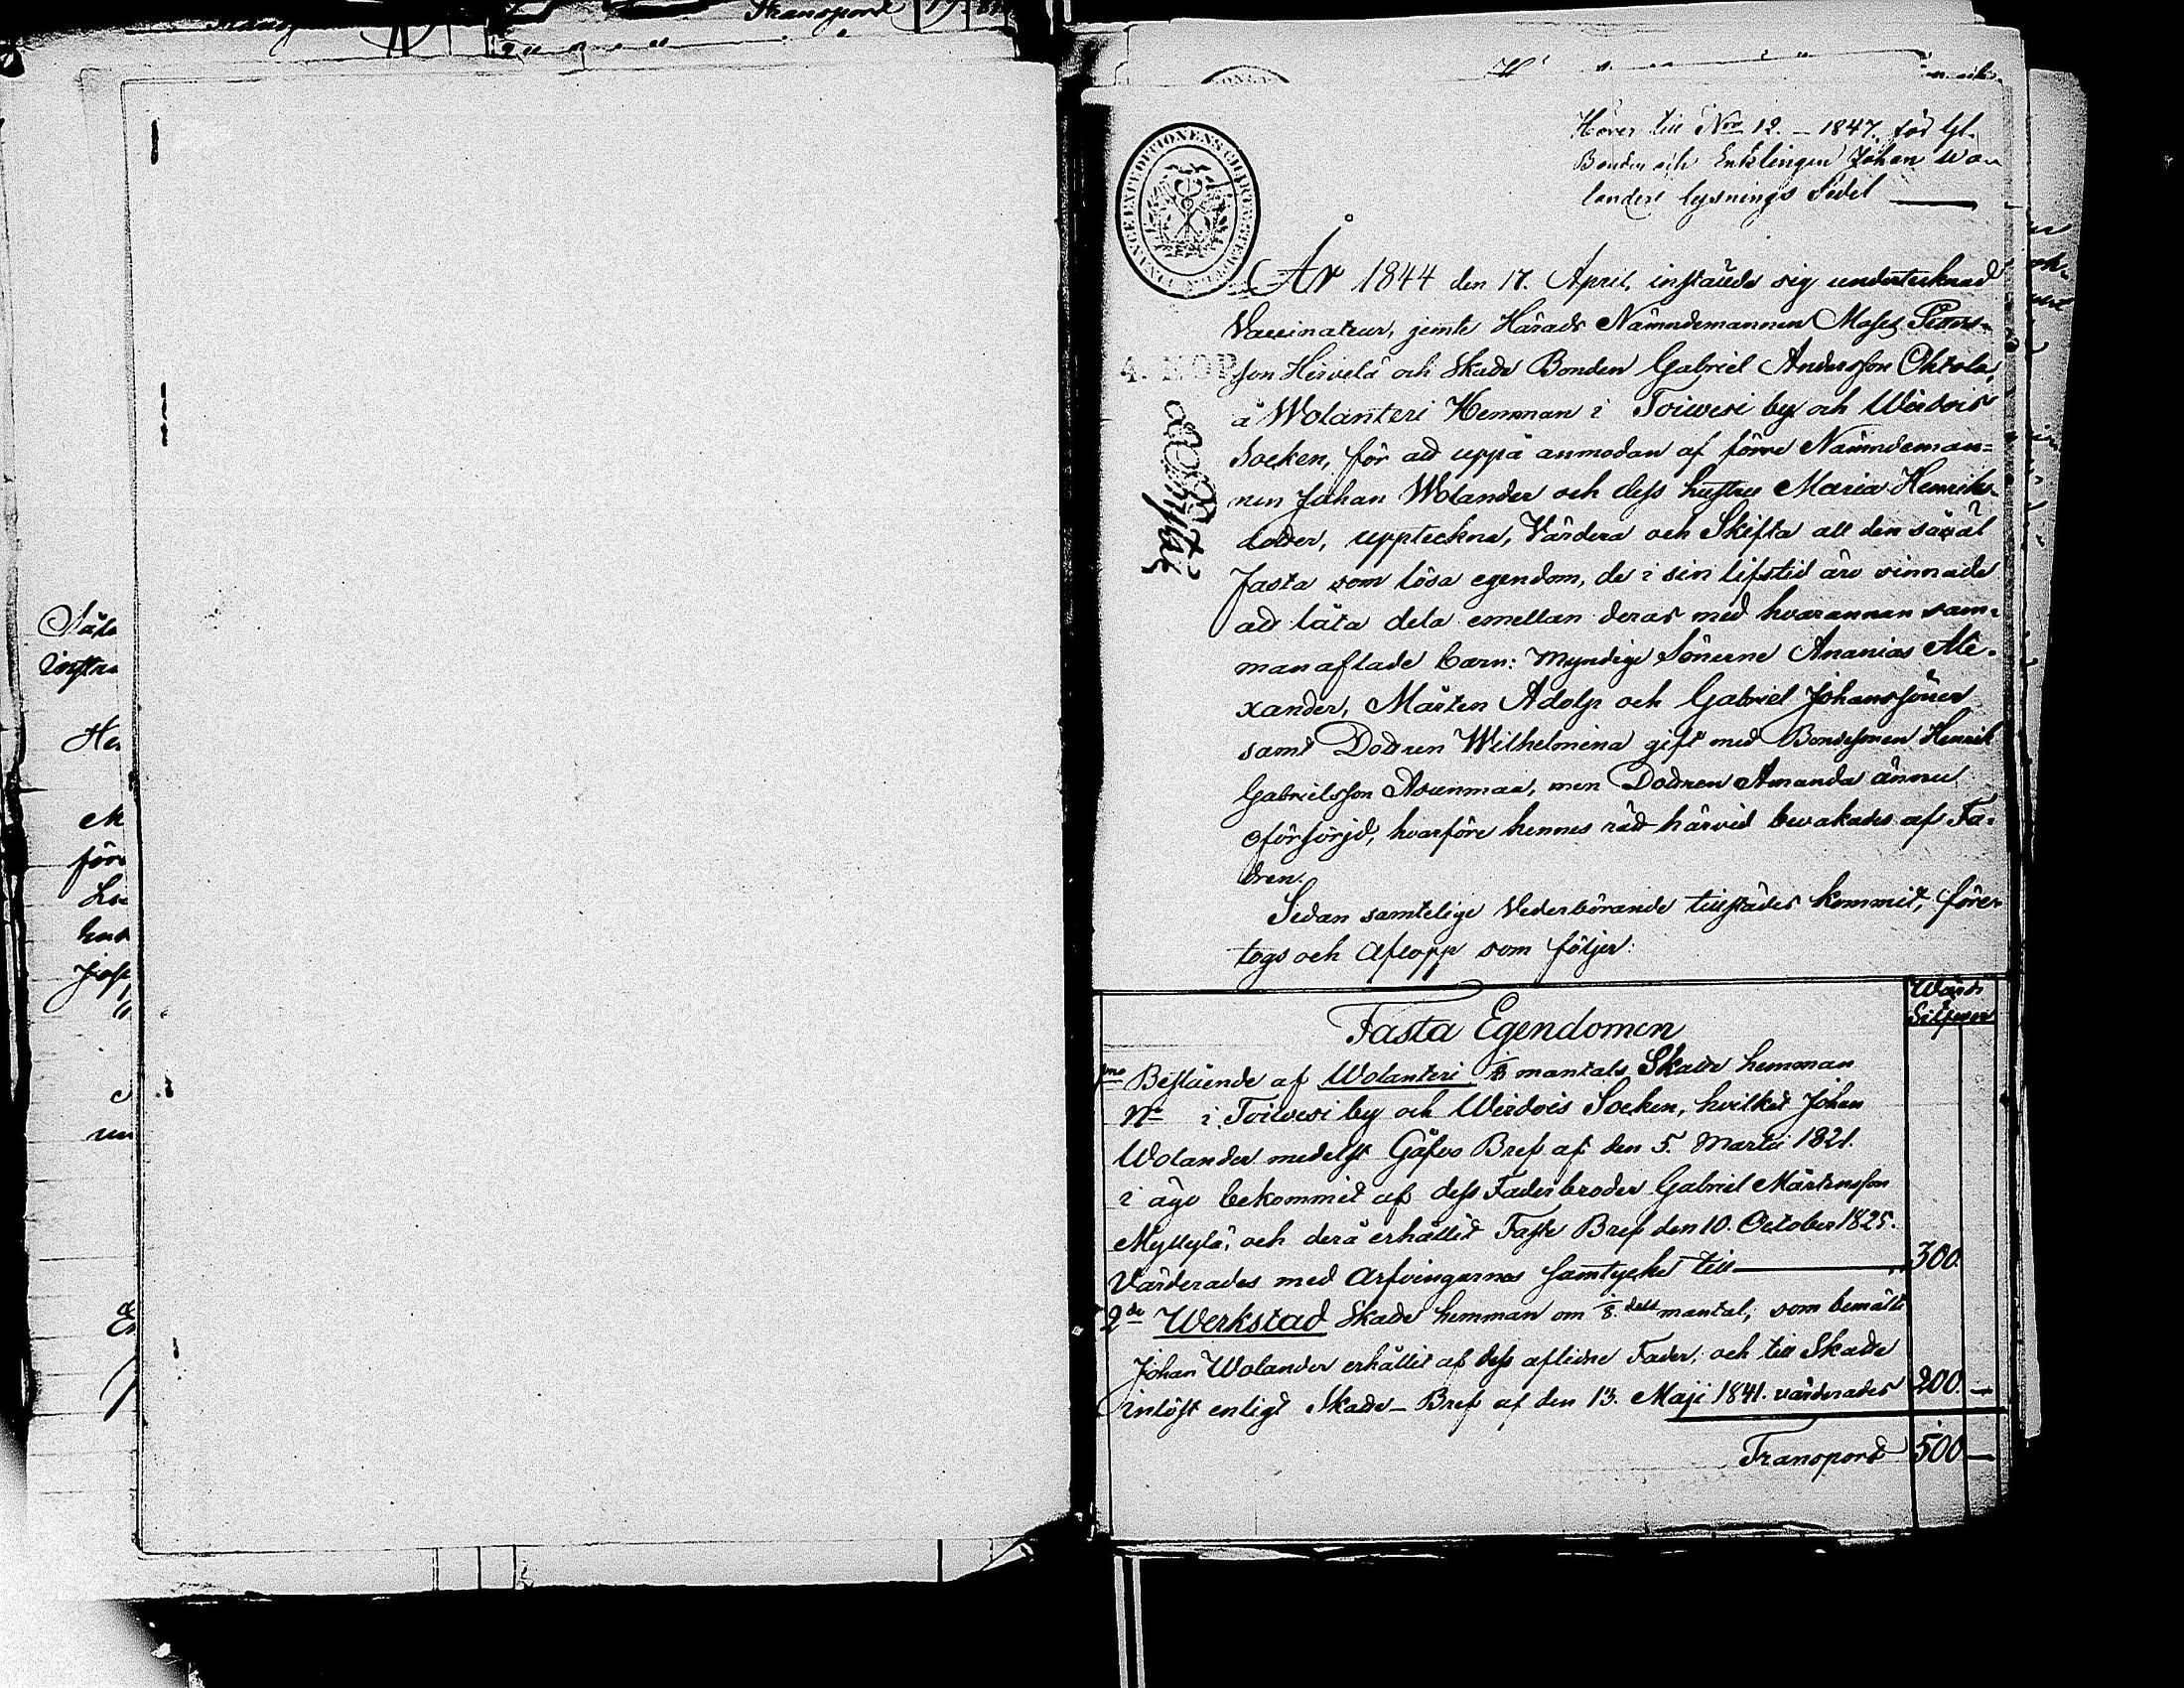 Transport
Hörer till Nro 12. – 1847. för
Bonden och Enklingen Johan Wo
landers lysnings Sedel
FINANCE EXPEDITIONENS CHARTÆ STEMPEL
År 1844 den 17. April, instälde sig undertecknad
Vaccinateur, jemte Härads Nämndemannen Moses Petters-
4. KOP
son Hirvelä och Skatte Bonden Gabriel Andersson Ohtola,
å Wolanteri Hemman i Toiwesi by och Wirdois
Socken, för att uppå anmodan af förre Nämndeman=
nen Johan Wolander och dess hustru Maria Henriks-
dotter, uppteckna, Värdera och Skifta all den såväl
fasta som lösa egendom, de i sin lifstid äro sinnade
att låta dela emellan deras med hvarannan sam-
manaflade barn: Myndige Sönerne Ananias Ale-
xander, Mårten Adolp och Gabriel Johanssöner
samt Dottren Wilhelmina gift med Bondesonen Henrik
Gabrielsson Asunmaa, men Dottren Amanda ännu
oförsörjd, hvarföre hennes rätt härvid bevakades af Fa-
dren.
Sedan samtelige Vederbörande tillstädes kommit, före-
togs och aflopp som följer:
Fasta Egendomen
Wärde
Silfwer
1mo Bestående af Wolanteri mantals Skatte hemman
No i Toiwesi by och Wirdois Socken, hvilket Johan
Wolander medelst Gåfvo Bref af den 5. Martii 1821.
i ägo bekommit af dess Faderbroder Gabriel Mårtensson
Myllylä, och derå erhållit Faste Bref den 10. October 1825.
Värderades med Arfvingarnes samtycke till 300.
2do Werkstad Skatte hemman om 1/8 dels mantal, som bemälte
Johan Wolander erhållit af dess aflidne Fader, och till Skatte
inlöst enligt Skatte-Bref af den 13. Maji 1841. värderades 200. —
Transport 500 —